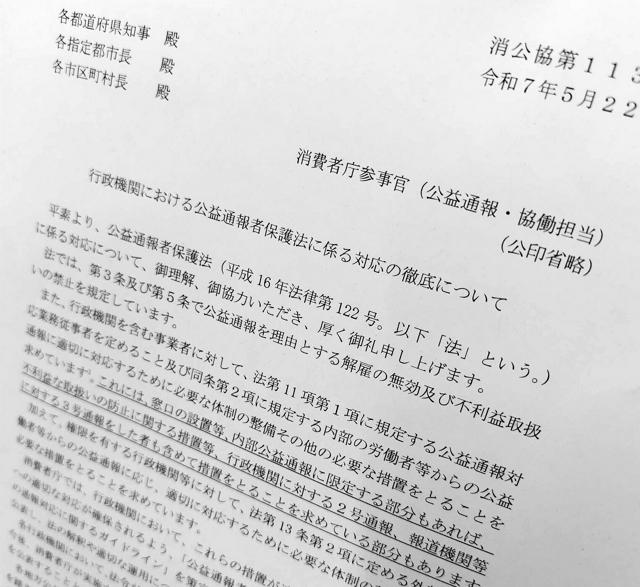 各都道府県知事　殿
各指定都市長　殿
各市区町村長　殿
消公協第１１３
令和７年５月２２
消費者庁参事官（公益通報・協働担当）
（公印省略）
行政機関における公益通報者保護法に係る対応の徹底について
平素より、公益通報者保護法（平成16年法律第122号。以下「法」という。）
に係る対応について、御理解、御協力いただき、厚く御礼申し上げます。
法では、第３条及び第５条で公益通報を理由とする解雇の無効及び不利益取扱
いの禁止を規定しています。
また、行政機関を含む事業者に対して、法第11項第１項に規定する公益通報対
応業務従事者を定めること及び同条第２項に規定する内部の労働者等からの公益
通報に適切に対応するために必要な体制の整備その他の必要な措置をとることを
求めています。これには、窓口の設置等、内部公益通報に限定する部分もあれば、
不利益な取扱いの防止に関する措置等、行政機関に対する２号通報、報道機関等
に対する３号通報をした者も含めて措置をとることを求めている部分もあります
加えて、権限を有する行政機関等に対して、法第13条第２項に定める外
働者等からの公益通報に応じ、適切に対応するために必要な体制の整
必要な措置をとることを求めています。
消費者庁では、行政機関において、これらの措置が
の適切な対応が確保されるよう、「公益通報者
の通報対応に関するガイドライン」を策定